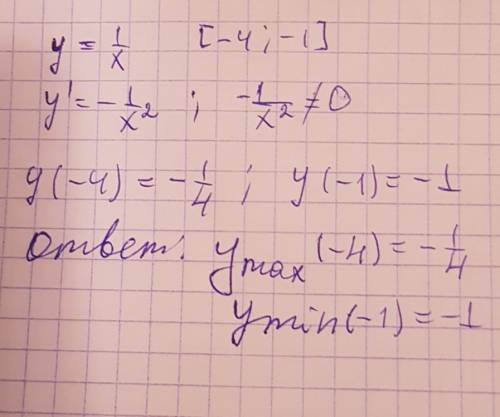 y = 1/x [-4; -1]
y' = -1/x² ; -1/x² ≠ 0
y(-4) = -1/4 ; y(-1) = -1
ответ: y max (-4) = -1/4
y min (-1) = -1